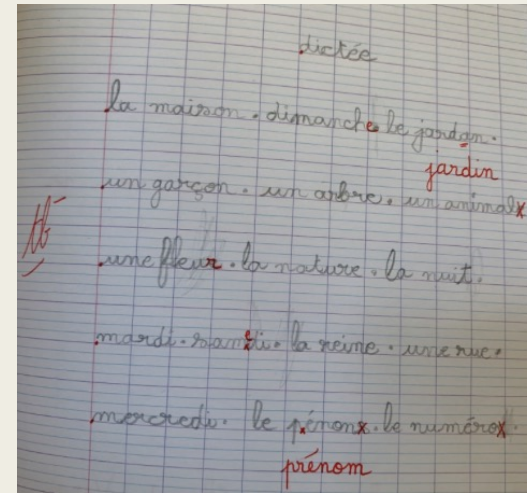 dictée
la maison. dimanche le jardon.
jardin
un garçon. un arbre. un animalx
tb
une fleur. la nature. la nuit.
mardi. samedi. la reine. une rue.
mercredi. le pénonx. le numérox.
prénom